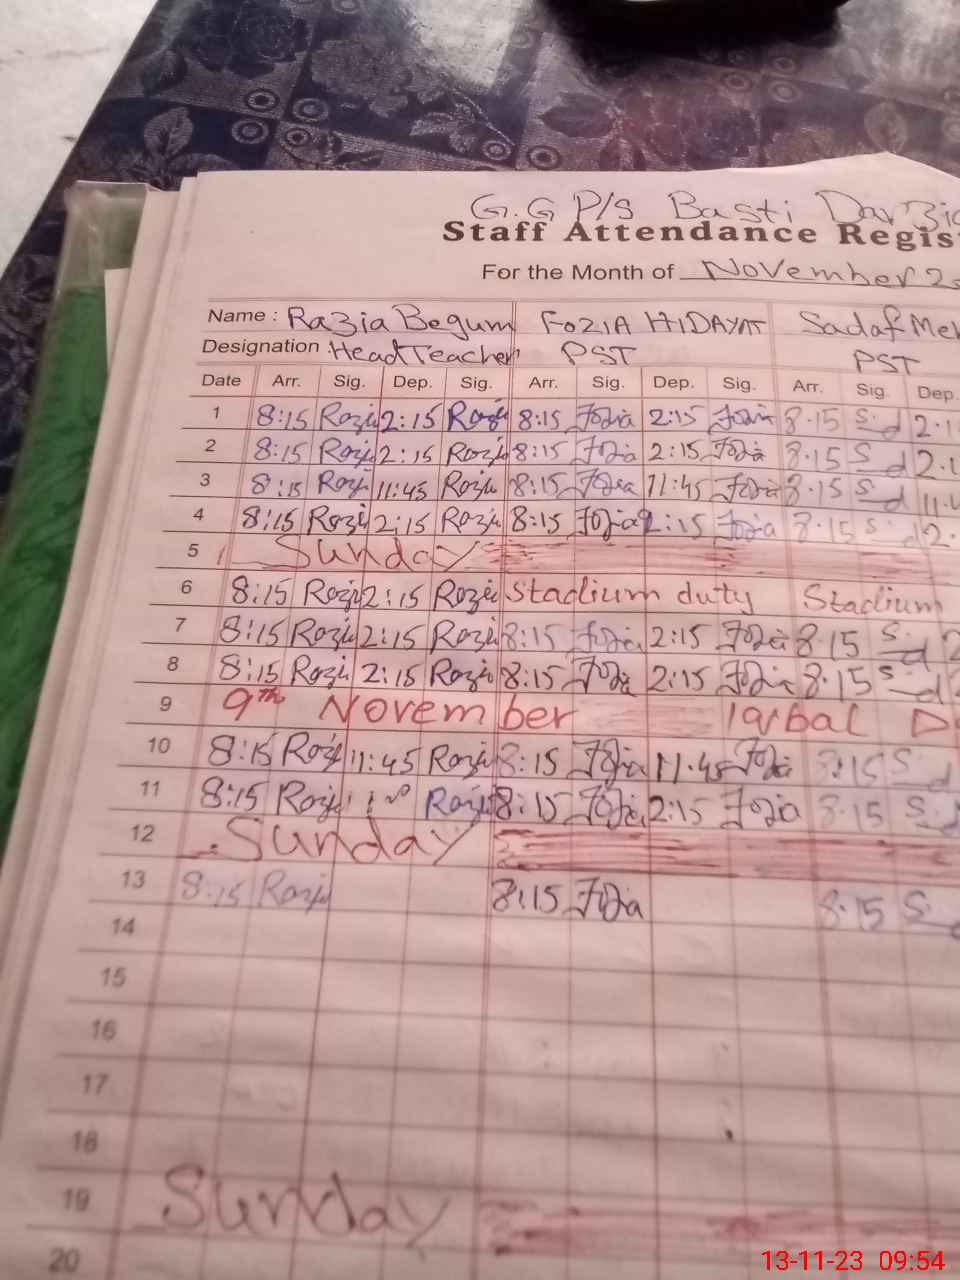 G.G P/S Basti
Staff Attendance Regis
For the Month of November
Name : Razia Begum FOZIA HIDAYAT Sadaf
Designation : Head Teacher PST PST
Date Arr. Sig. Dep. Sig. Arr. Sig. Dep. Sig. Arr. Sig. Dep.
1 8:15 Razi 2:15 Razi 8:15 Fozia 2:15 Fozia 8.15 S.d
2 8:15 Razi 2:15 Razi 8:15 Fozia 2:15 Fozia 8.15 S.d
3 8:15 Razi 11:45 Razi 8:15 Fozia 11:45 Fozia 8.15 S.d
4 8:15 Razi 2:15 Razi 8:15 Fozia 2:15 Fozia 8.15 S.d
5 Sunday
6 8:15 Razi 2:15 Razi Stadium duty Stadium
7 8:15 Razi 2:15 Razi 8:15 Fozia 2:15 Fozia 8.15 S.d
8 8:15 Razi 2:15 Razi 8:15 Fozia 2:15 Fozia 8.15 S.d
9 9th November Iqbal D
10 8:15 Razi 11:45 Razi 8:15 Fozia 11.45 Fozia 8.15 S.d
11 8:15 Razi Razi 8:15 Fozia 2:15 Fozia 8.15 S.d
12 Sunday
13 8:15 Razi 8:15 Fozia 8.15 S.
14
15
16
17
18
19 Sunday
20
13-11-23 09:54